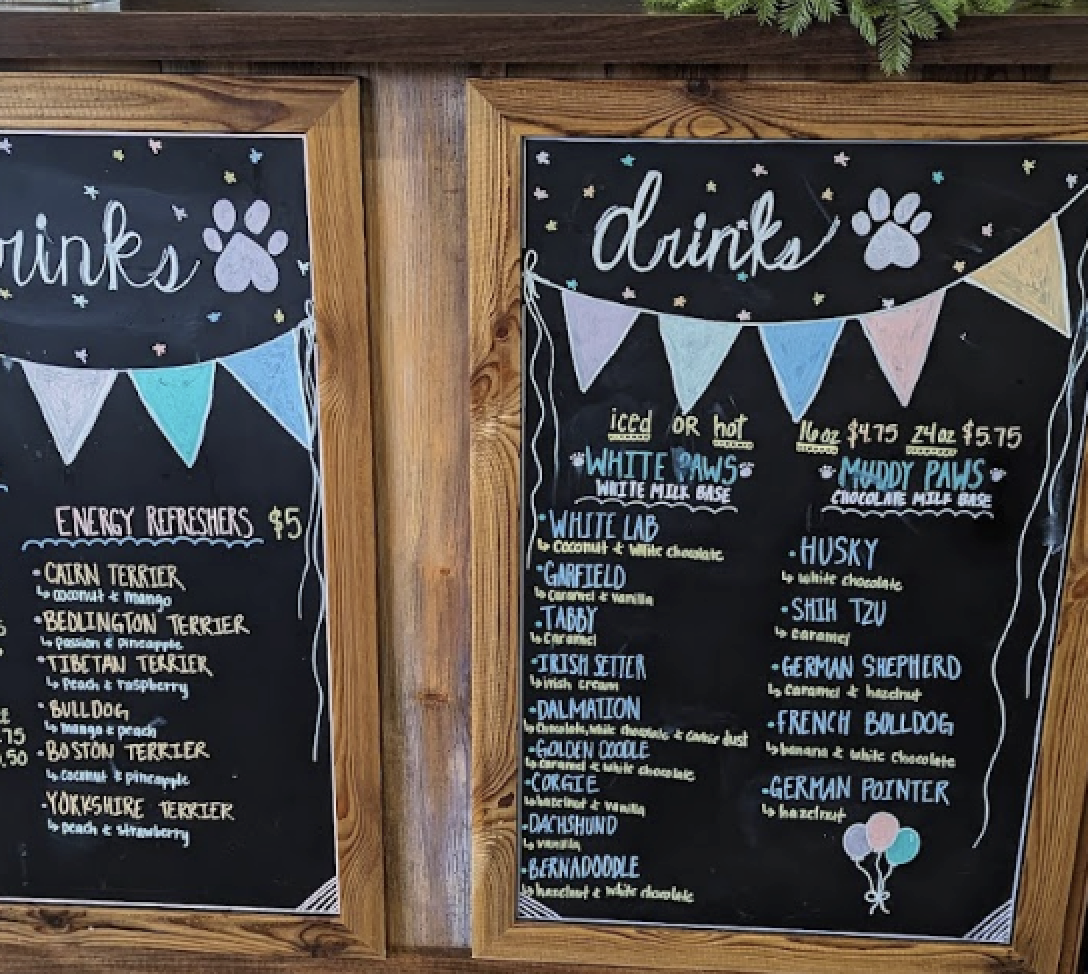 rinks
ENERGY REFRESHERS $5
·CAIRN TERRIER
↳ coconut & mango
·BEDLINGTON TERRIER
↳ passion & pineapple
·TIBETAN TERRIER
↳ peach & raspberry
·BULLDOG
↳ mango & peach
·BOSTON TERRIER
↳ coconut & pineapple
·YORKSHIRE TERRIER
↳ peach & strawberry
.75
.50
drinks
iced OR hot
16oz $4.75 24oz $5.75
WHITE PAWS
WHITE MILK BASE
·WHITE LAB
↳ coconut & white chocolate
·GARFIELD
↳ caramel & vanilla
·TABBY
↳ caramel
·IRISH SETTER
↳ irish cream
·DALMATION
↳ chocolate, white chocolate & cookie dust
·GOLDEN DOODLE
↳ caramel & white chocolate
·CORGIE
↳ hazelnut & vanilla
·DACHSHUND
↳ vanilla
·BERNADOODLE
↳ hazelnut & white chocolate
MUDDY PAWS
CHOCOLATE MILK BASE
·HUSKY
↳ white chocolate
·SHIH TZU
↳ caramel
·GERMAN SHEPHERD
↳ caramel & hazelnut
·FRENCH BULLDOG
↳ banana & white chocolate
·GERMAN POINTER
↳ hazelnut